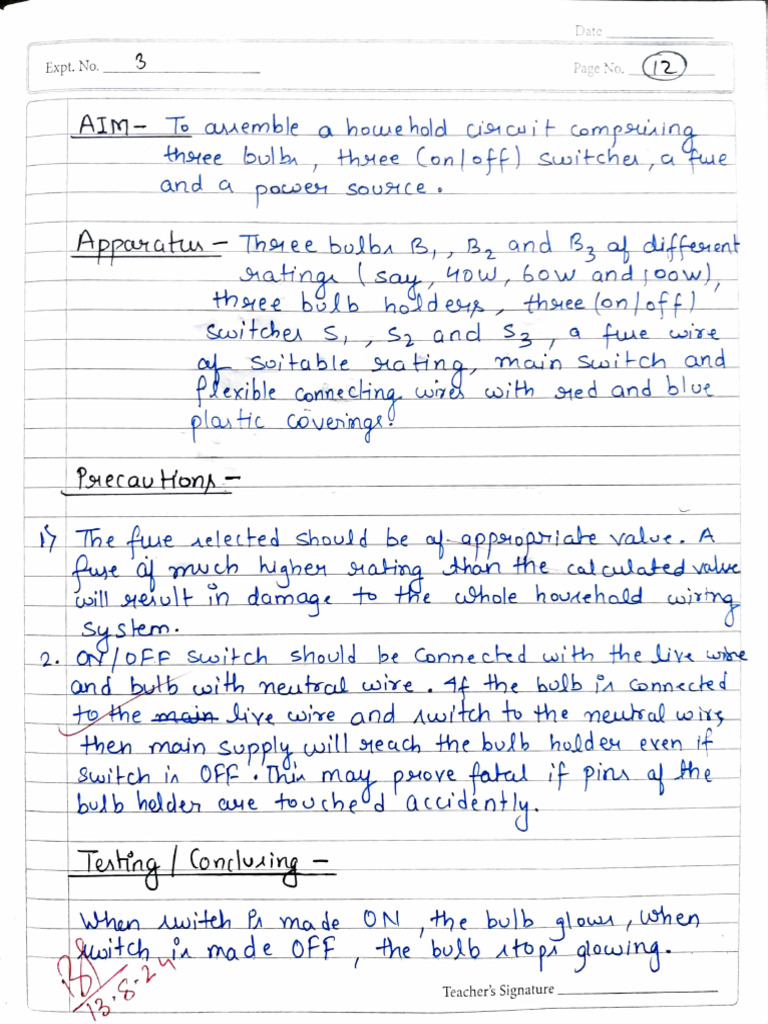 Date
Expt. No. 3
Page No. 12
AIM- To assemble a household circuit comprising
three bulbs, three (on/off) switches, a fuse
and a power source.
Apparatus - Three bulbs B1, B2 and B3 of different
ratings (say, 40W, 60W and 100W),
three bulb holders, three (on/off)
switches S1, S2 and S3, a fuse wire
of suitable rating, main switch and
flexible connecting wires with red and blue
plastic coverings.
Precautions -
1) The fuse selected should be of appropriate value. A
fuse of much higher rating than the calculated value
will result in damage to the whole household wiring
system.
2. ON/OFF switch should be connected with the live wire
and bulb with neutral wire. If the bulb is connected
to the main live wire and switch to the neutral wire,
then main supply will reach the bulb holder even if
switch is OFF. This may prove fatal if pins of the
bulb holder are touched accidently.
Testing / Concluring -
When switch is made ON, the bulb glows, when
switch is made OFF, the bulb stops glowing.
13.8.24
Teacher's Signature